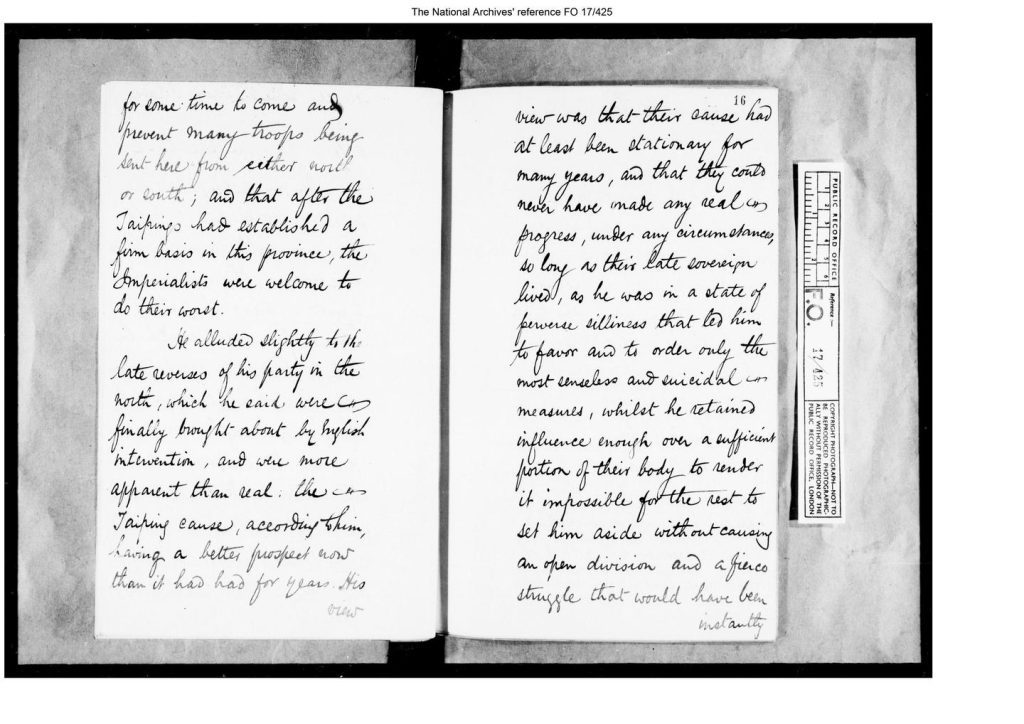 The National Archives' reference FO 17/425
for some time to come and
prevent many troops being
sent here from either north
or south; and that after the
Taipings had established a
firm basis in this province, the
Imperialists were welcome to
do their worst.
He alluded slightly to the
late reverses of his party in the
north, which he said were
finally brought about by English
intervention, and were more
apparent than real: the
Taiping cause, according to him,
having a better prospect now
than it had had for years. His
view
16
view was that their cause had
at least been stationary for
many years, and that they could
never have made any real
progress, under any circumstances,
so long as their late sovereign
lived, as he was in a state of
perverse silliness that led him
to favor and to order only the
most senseless and suicidal
measures, whilst he retained
influence enough over a sufficient
portion of their body to render
it impossible for the rest to
set him aside without causing
an open division and a fierce
struggle that would have been
instantly
PUBLIC RECORD OFFICE
1 2 3 4 5 6
1 2
Reference:-
F.O. 17/425
COPYRIGHT PHOTOGRAPH-NOT TO
BE REPRODUCED PHOTOGRAPHIC-
ALLY WITHOUT PERMISSION OF THE
PUBLIC RECORD OFFICE, LONDON